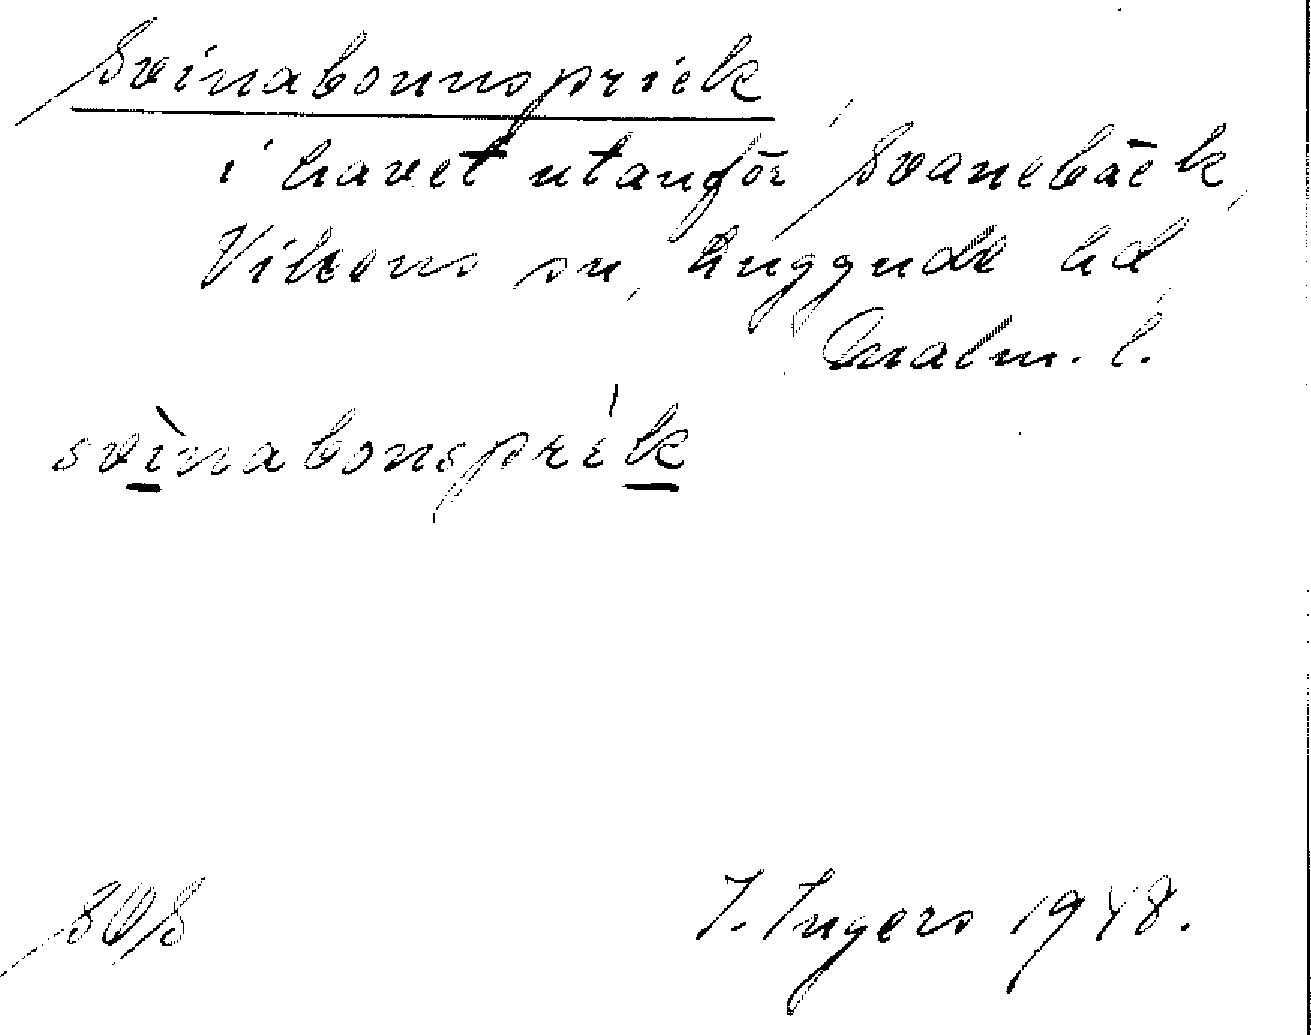 Svinabonnsprick,
i havet utanför Svanebäck,
Vikens sn, Luggude hd,
Malm. l.
svìnabonsprík
SOS I. Ingers 1948.